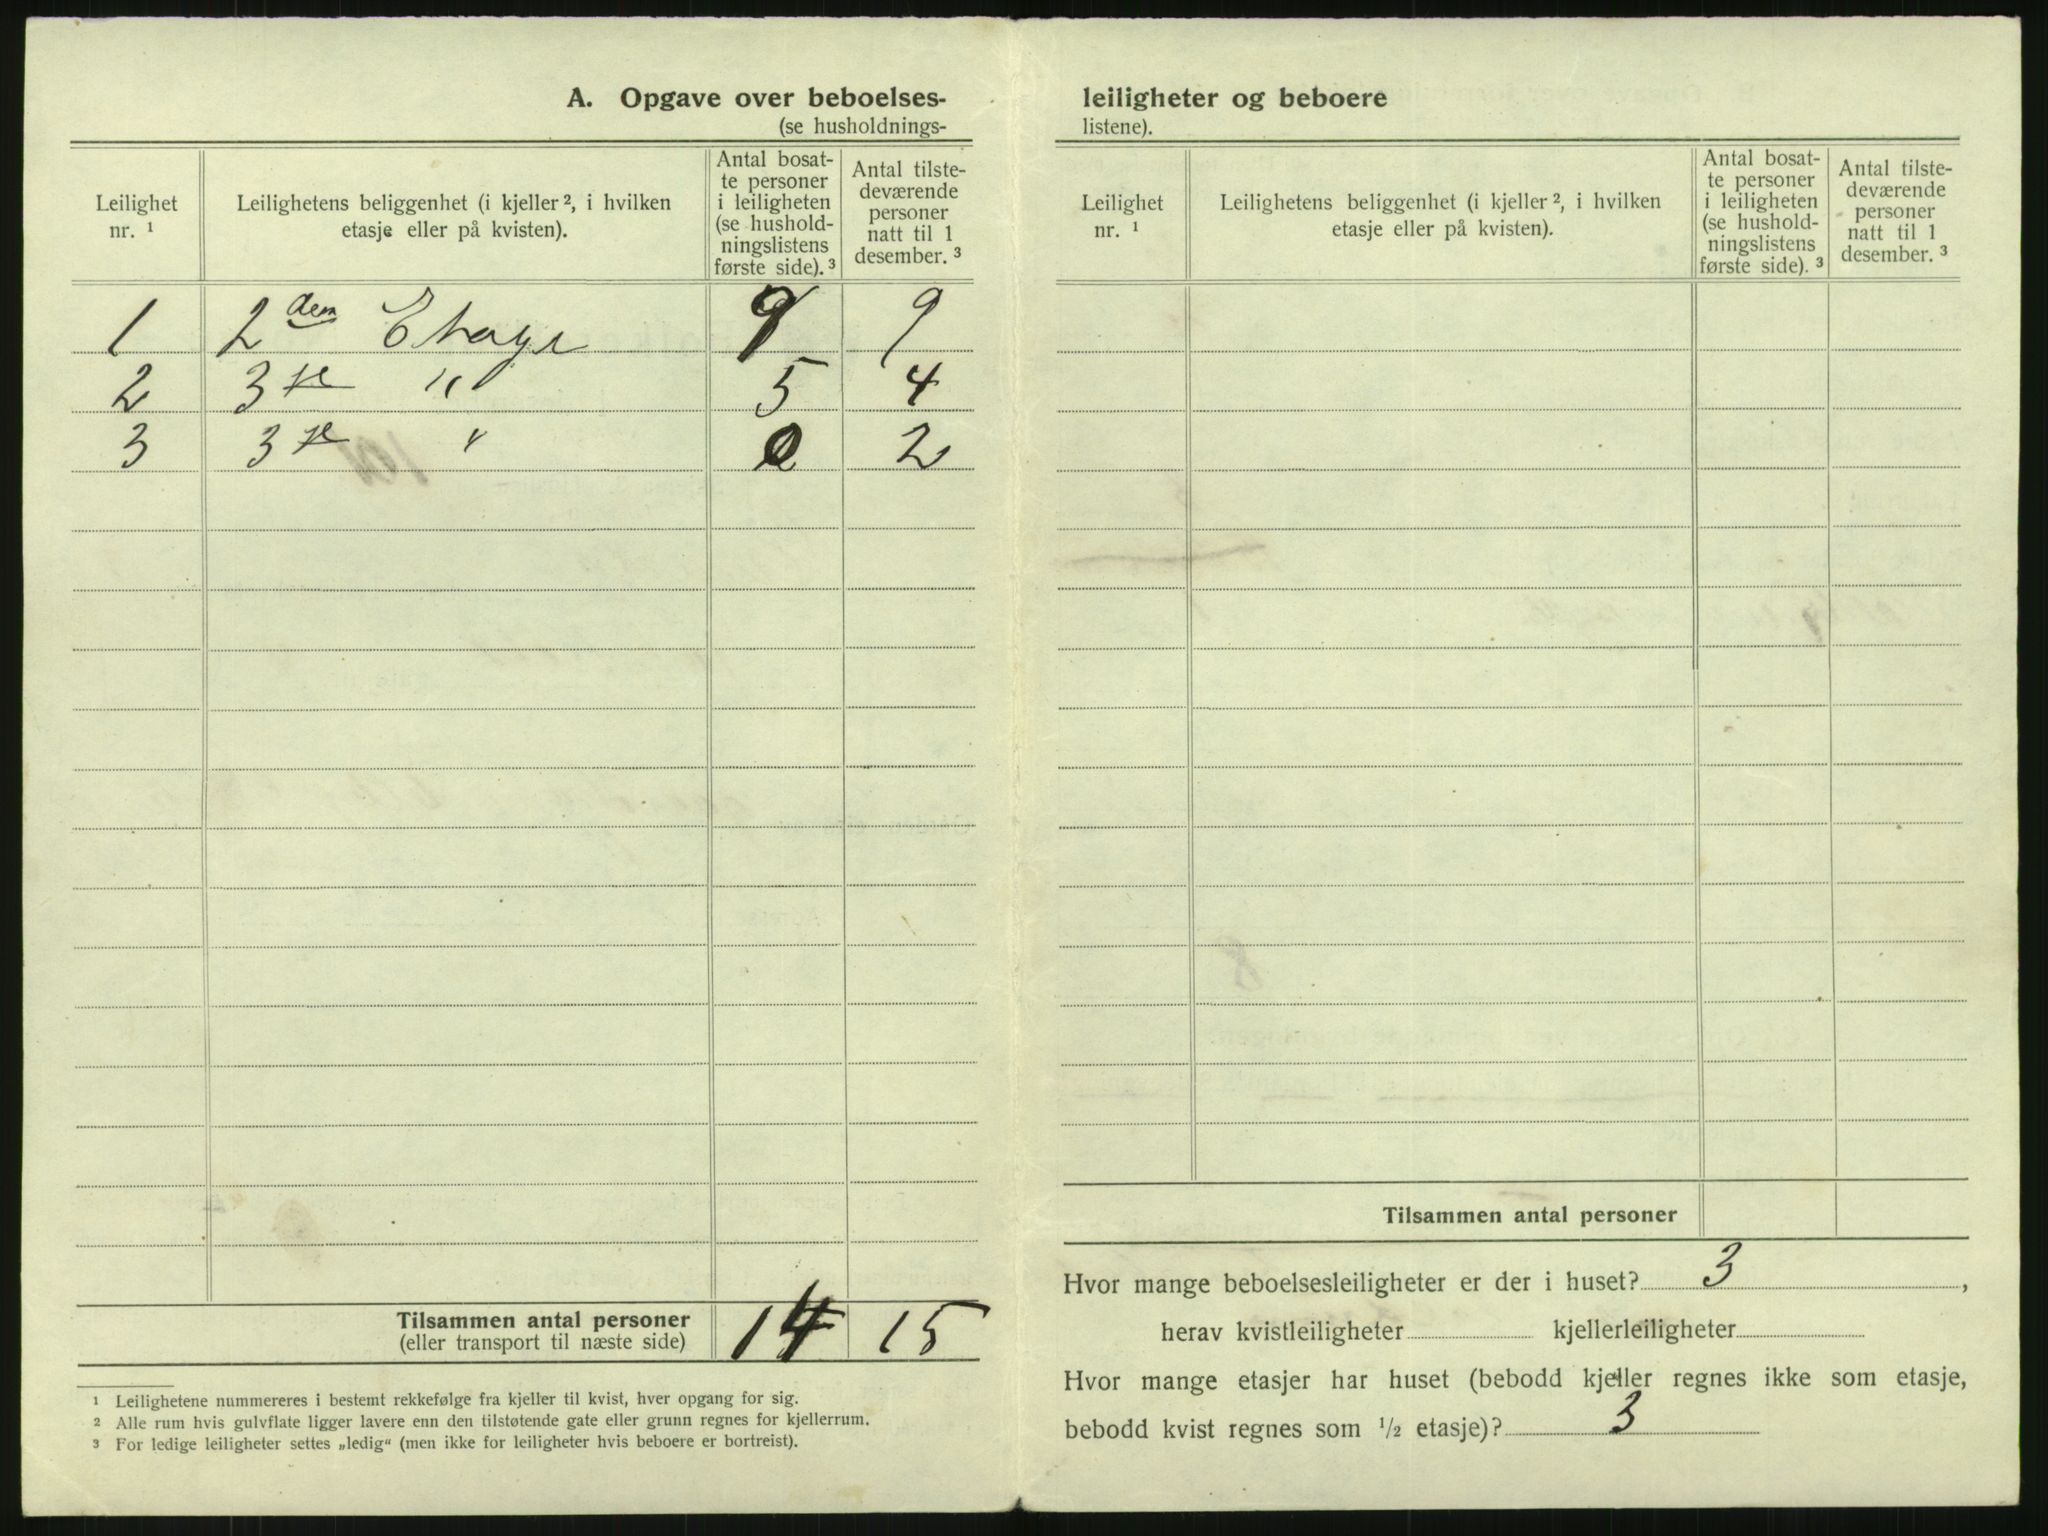 A. Opgave over beboelses-
(se husholdnings-
Leilighet nr. 1
Leilighetens beliggenhet (i kjeller 2, i hvilken etasje eller på kvisten).
Antal bosat-
te personer
i leiligheten
(se hushold-
ningslistens
første side). 3
Antal tilste-
deværende
personer
natt til 1
desember. 3
1 2 den Etage 9 9
2 3 je " 5 4
3 3 je " 0 2
Tilsammen antal personer 14 15
(eller transport til næste side)
1 Leilighetene nummereres i bestemt rekkefølge fra kjeller til kvist, hver opgang for sig.
2 Alle rum hvis gulvflate ligger lavere enn den tilstøtende gate eller grunn regnes for kjellerrum.
3 For ledige leiligheter settes „ledig“ (men ikke for leiligheter hvis beboere er bortreist).
leiligheter og beboere
listene).
Leilighet nr. 1
Leilighetens beliggenhet (i kjeller 2, i hvilken etasje eller på kvisten).
Antal bosat-
te personer
i leiligheten
(se hushold-
ningslistens
første side). 3
Antal tilste-
deværende
personer
natt til 1
desember. 3
Tilsammen antal personer
Hvor mange beboelsesleiligheter er der i huset? 3,
herav kvistleiligheter kjellerleiligheter
Hvor mange etasjer har huset (bebodd kjeller regnes ikke som etasje,
bebodd kvist regnes som 1/2 etasje)? 3